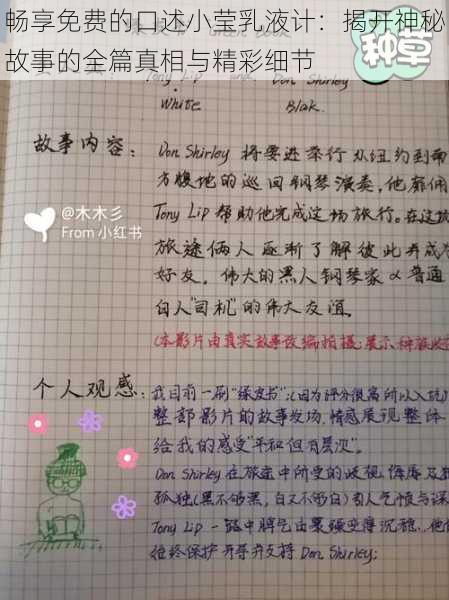 畅享免费的口述小莹乳液计：揭开神秘
故事的全篇真相与精彩细节
种草
Tony Lip and Don Shirley
White Blak.
故事内容：Don Shirley 将要进举行从纽约到南
方腹地的巡回钢琴演奏，他雇佣
Tony Lip 帮助他完成这场旅行。在这
旅途俩人逐渐了解彼此并成为
好友。伟大的黑人钢琴家&普通
白人"司机"的伟大友谊。
@木木彡
From 小红书
(本影片由真实故事改编拍摄，展示种族歧
个人观感：我目前一刷"绿皮书"，(因为评分很高所以入坑)
整部影片的故事发场，情感展现整体
给我的感受"平和但有层次"。
Don Shirley 在旅途中所受的歧视、侮辱及
孤独(黑不够黑，白又不够白)引人气愤与深
Tony Lip - 路中脾气由暴躁变得沉稳、他
始终保护、开导并支持 Don Shirley;